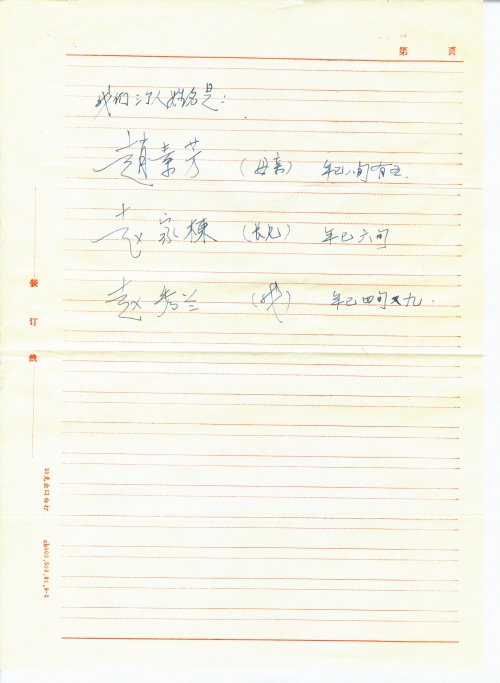 第 页
我们三人姓名是:
趙素芳 (母亲) 年已八旬有五.
赵家棟 (长兄) 年已六旬
赵秀兰 (我) 年已四旬又九.
装
订
线